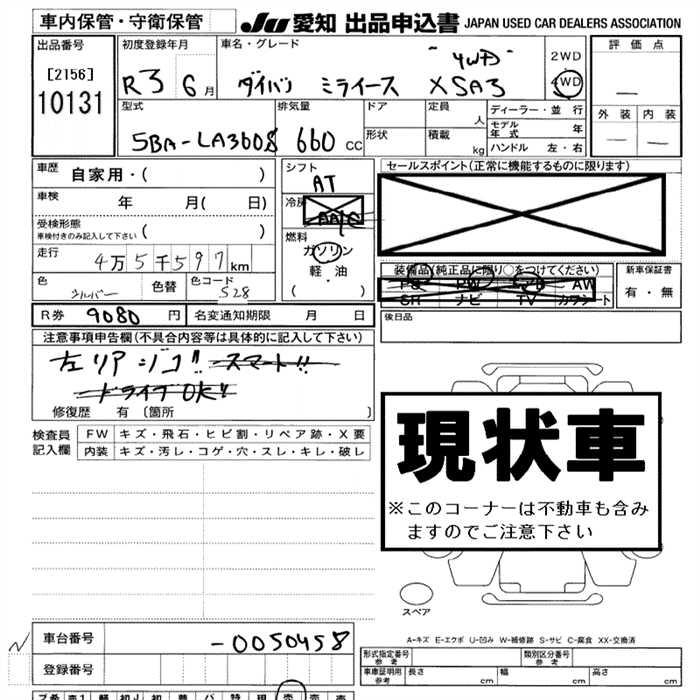 車内保管・守衛保管 JU 愛知 出品申込書 JAPAN USED CAR DEALERS ASSOCIATION
出品番号 初度登録年月 車名・グレード 評価点
[2156] R3 6月 ダイハツ ミライース XSA3 4WD 2WD
10131 4WD
型式 排気量 ドア 定員 人 ディーラー・並行 外装 内装
モデル年式 年
5BA-LA360S 660 CC 形状 積載 kg ハンドル 左・右
車歴 自家用・( ) シフト AT セールスポイント(正常に機能するものに限ります)
車検 年 月( 日) 冷房 AA/C
受検形態 ( )
車検付きのみ記入して下さい
燃料 ガソリン
走行 4万5千597km 軽・油 装備品(純正品に限り○をつけてください) 新車保証書
色 シルバー 色替 色コード S28 ( ・ ) PS PW エアB AW 有・無
SR ナビ TV カワシート
R券 9080円 名変通知期限 月 日 後日品
注意事項申告欄(不具合内容等は具体的に記入して下さい)
左リアジコ!! スマート!!
ドライブOK!!
修復歴 有 〔箇所 〕
検査員記入欄 FW キズ・飛石・ヒビ割・リペア跡・X要
内装 キズ・汚レ・コゲ・穴・スレ・キレ・破レ
現状車
※このコーナーは不動車も含み
ますのでご注意下さい
スペア
A-キズ E-エクボ U-凹み W-補修跡 S-サビ C-腐食 XX-交換済
車台番号 -0050458
登録番号
形式指定番号 参考 類別区分番号 参考
車庫証明用 参考 長さ cm 幅 cm 高さ cm